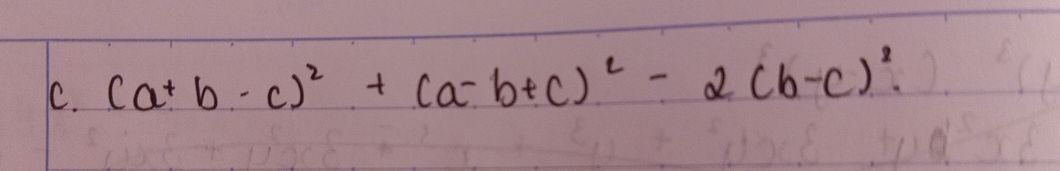 c. (a+ b - c)² + (a- b+c)² - 2 (b-c)².